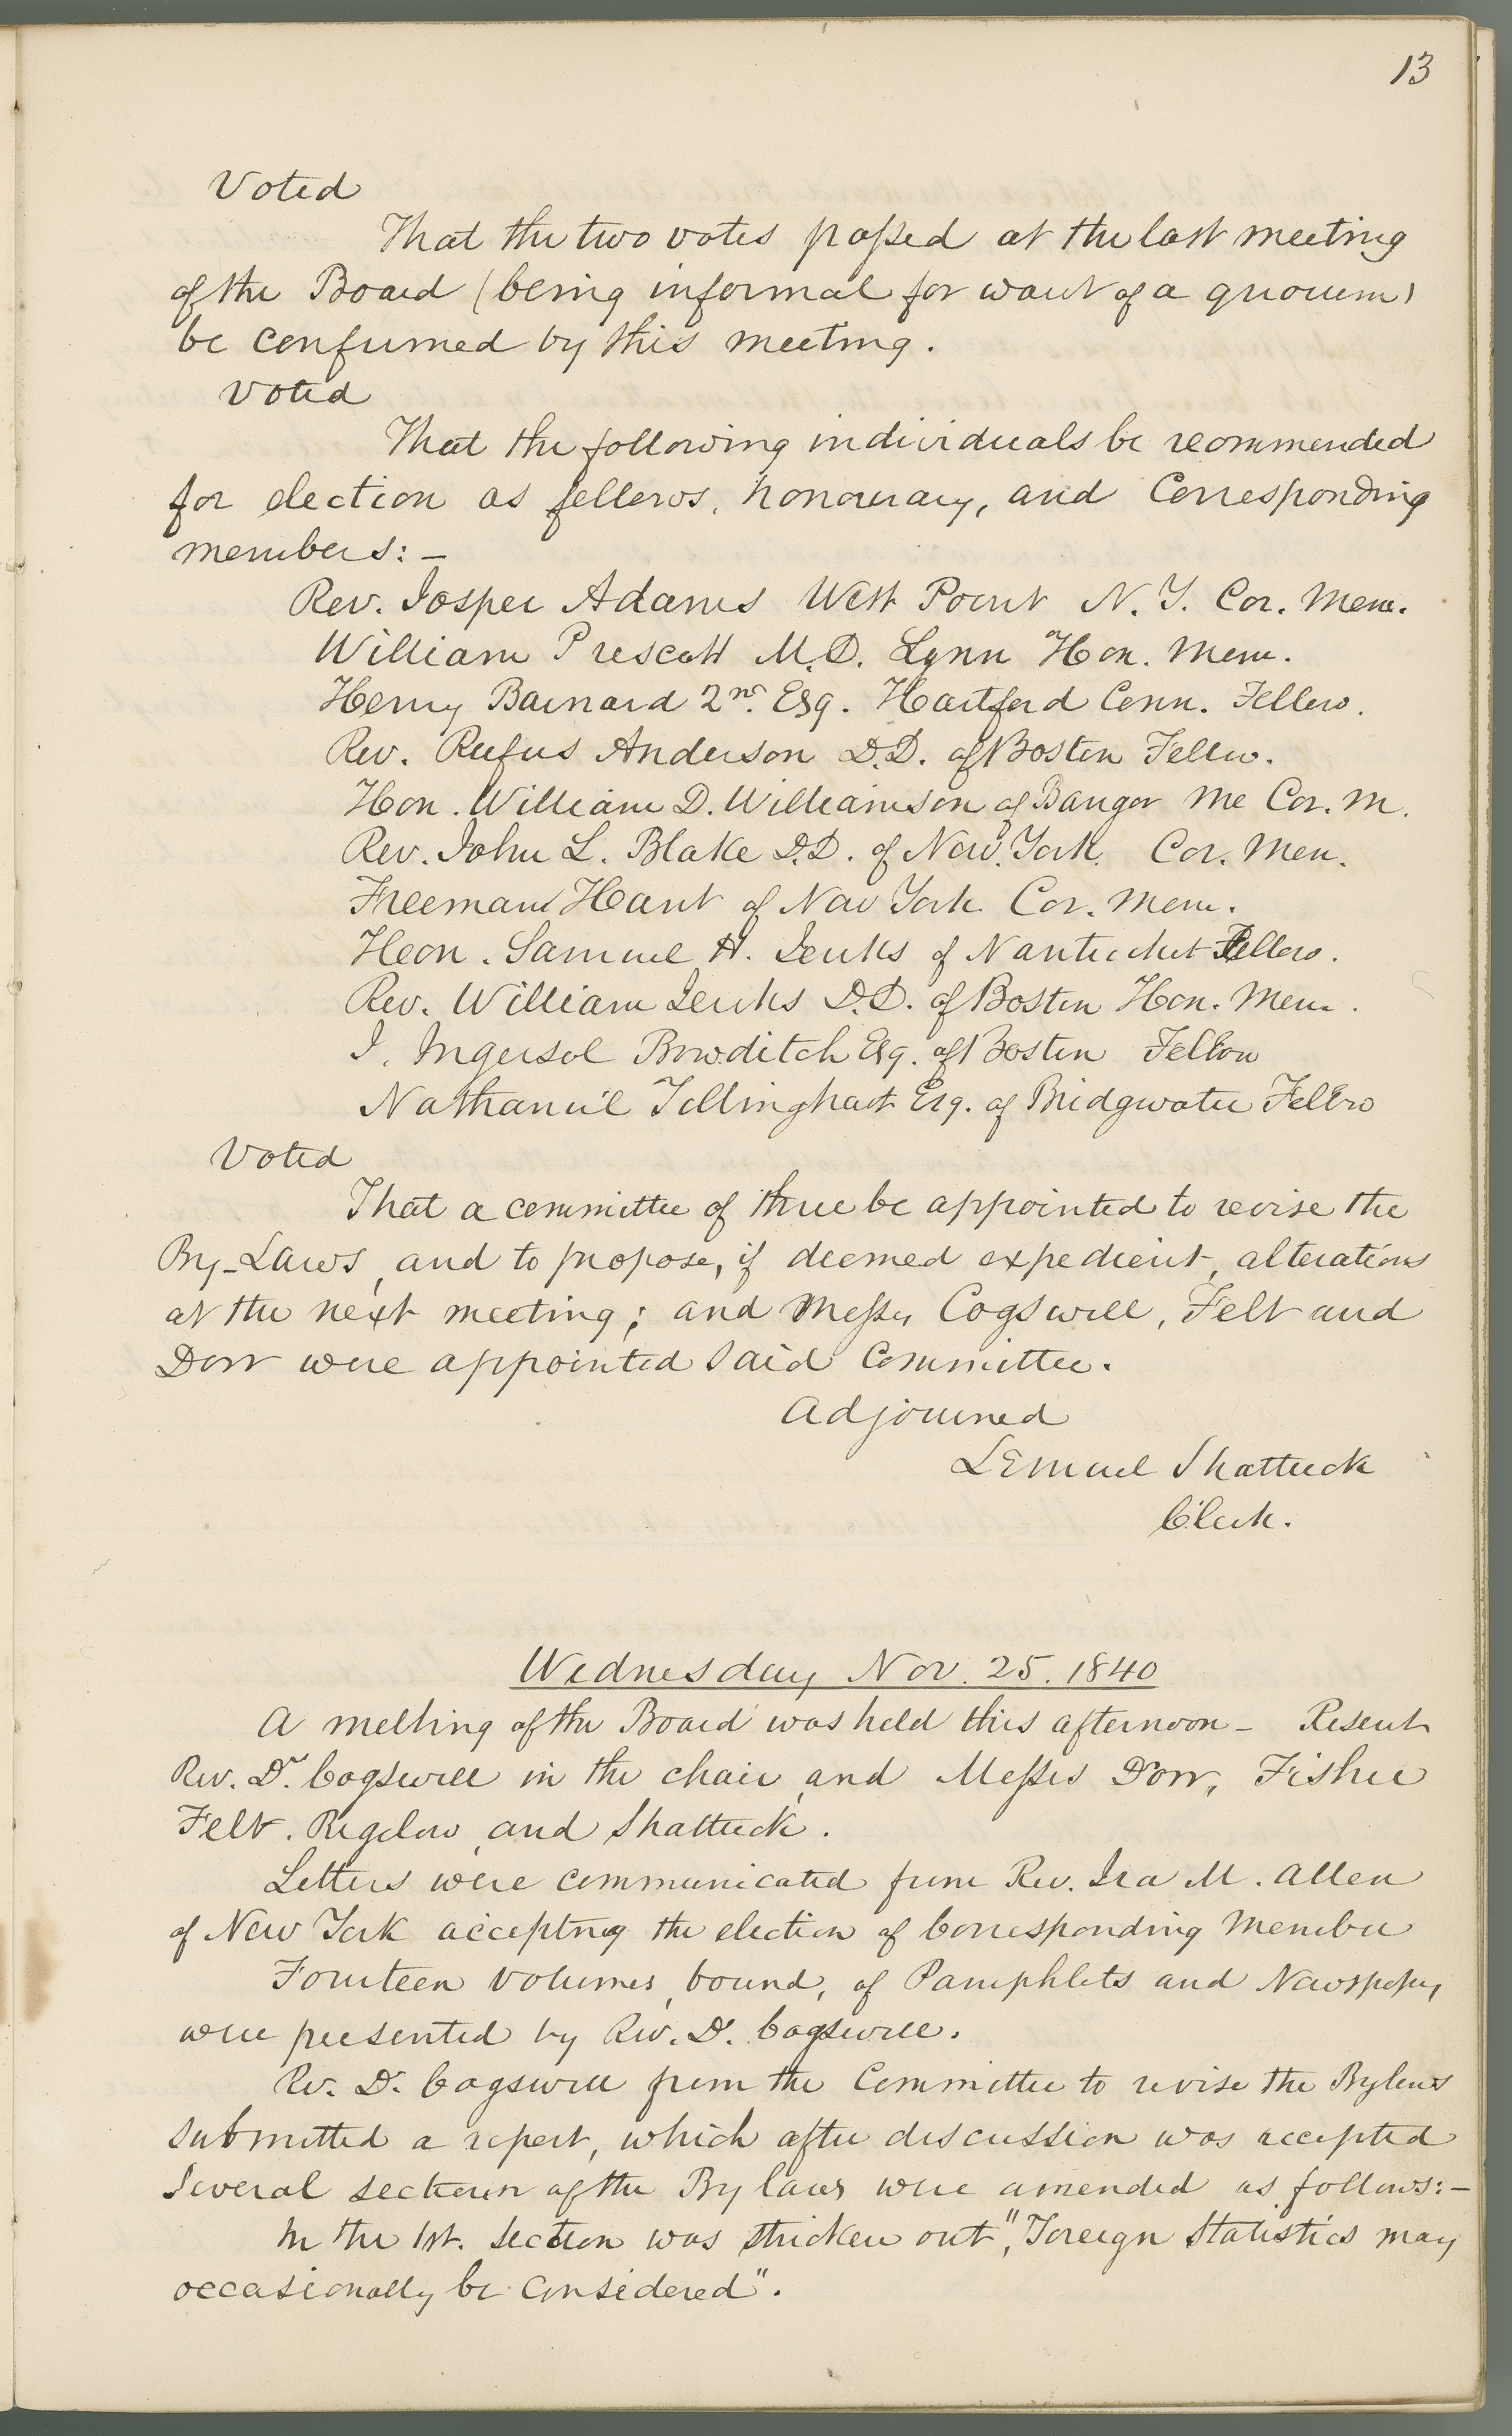 13
Voted
That the two votes passed at the last meeting
of the Board (being informal for want of a quorum)
be confirmed by this meeting.
Voted
That the following individuals be recommended
for election as fellows, honourary, and Corresponding
members:-
Rev. Josper Adams West Point N.Y. Cor. Mem.
William Prescott M.D. Lynn Hon. Mem.
Henry Barnard 2nd. Esq. Hartford Conn. Fellow.
Rev. Rufus Anderson D.D. of Boston Fellow.
Hon. William D. Williamson of Bangor Me Cor. M.
Rev. John L. Blake D.D. of New York. Cor. Mem.
Freeman Hunt of New York Cor. Mem.
Hon. Samuel H. Jenks of Nantucket Fellow.
Rev. William Jenks D.D. of Boston Hon. Mem.
I. Ingersol Bowditch Esq. of Boston Fellow
Nathaniel Tillinghast Esq. of Bridgwater Fellow
Voted
That a committee of three be appointed to revise the
By-Laws, and to propose, if deemed expedient, alterations
at the next meeting; and Messrs Cogswell, Felt and
Dorr were appointed said Committee.
Adjourned
Lemuel Shattuck
Clerk.
Wednesday Nov. 25. 1840
A meeting of the Board was held this afternoon - Present
Rev. Dr. Cogswell in the chair, and Messrs Dorr, Fisher
Felt. Bigelow, and Shattuck.
Letters were communicated from Rev. Ira M. Allen
of New York accepting the election of Corresponding Member
Fourteen volumes, bound, of Pamphlets and Newspapers
were presented by Rev. Dr. Cogswell.
Rev. Dr. Cogswell from the Committee to revise the Bylaws
submitted a report, which after discussion was accepted
Several sections of the By laws were amended as follows:-
In the 1st. Section was stricken out, "Foreign Statistics may
occasionally be Considered".